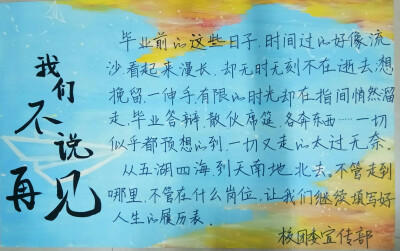 我们
不说
再见
毕业前的这些日子,时间过的好像流
沙,看起来漫长,却无时无刻不在逝去,想
挽留,一伸手,有限的时光却在指间悄然溜
走,毕业答辩,散伙席筵,各奔东西……一切
似乎都预想的到,一切又走的太过无奈。
从五湖四海,到天南地北去。不管走到
哪里,不管在什么岗位,让我们继续填写好
人生的履历表。
校团委宣传部